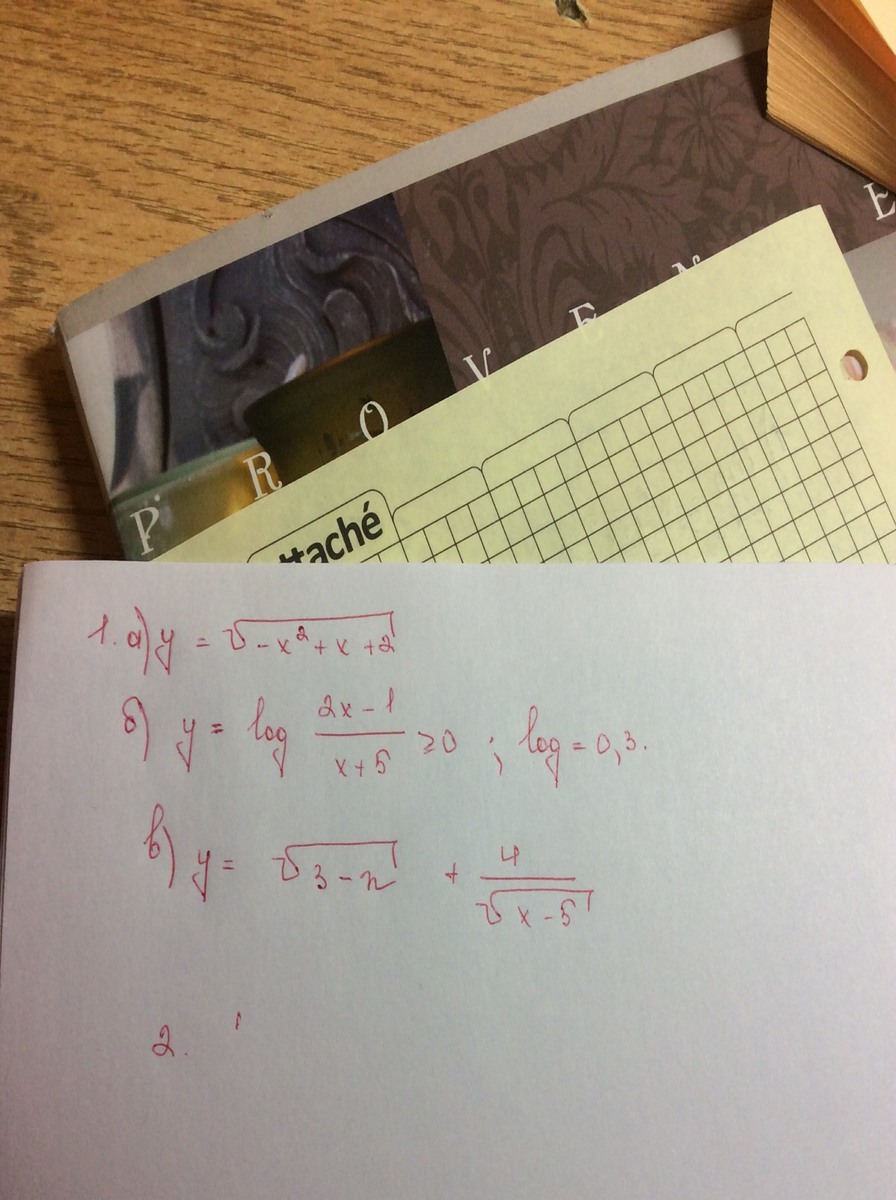 P R O V E N E
ttaché
1. а) y = √-x² + x + 2
б) y = log (2x - 1)/(x + 5) ≥ 0 ; log = 0,3.
в) y = √3 - x + 4/√x - 5
2.